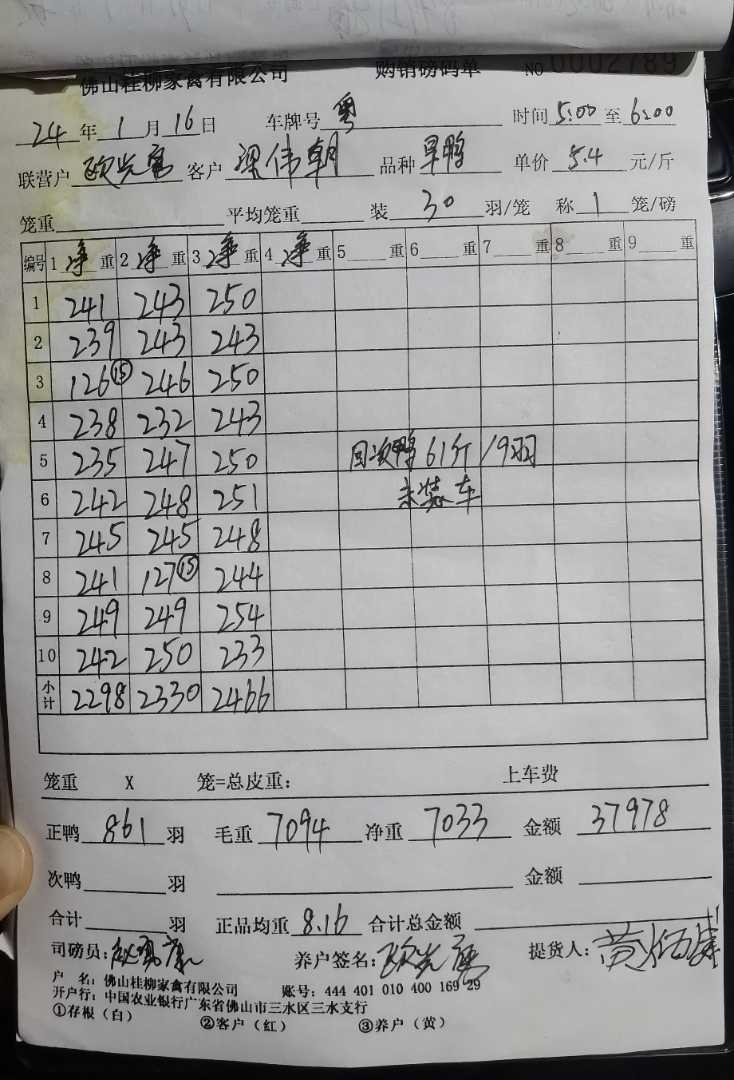 佛山桂柳家禽有限公司 购销磅码单 NO 0002789
24 年 1 月 16 日 车牌号 粤 时间 5:00 至 6:00
联营户 欧光富 客户 梁伟朝 品种 旱鸭 单价 5.4 元/斤
笼重 平均笼重 装 30 羽/笼 称 1 笼/磅
编号 1 净 重 2 净 重 3 净 重 4 净 重 5 重 6 重 7 重 8 重 9 重
1 241 243 250
2 239 243 243
3 126 ⑮ 246 250
4 238 232 243
5 235 247 250 回次鸭 61斤/19羽
6 242 248 251 未装车
7 245 245 248
8 241 127 ⑮ 244
9 249 249 254
10 242 250 233
小计 2298 2330 2466
笼重 X 笼=总皮重: 上车费
正鸭 861 羽 毛重 7094 净重 7033 金额 37978
次鸭 羽 金额
合计 羽 正品均重 8.16 合计总金额
司磅员: 养户签名: 提货人:
户 名: 佛山桂柳家禽有限公司 账号: 444 401 010 400 169 29
开户行: 中国农业银行广东省佛山市三水区三水支行
①存根（白） ②客户（红） ③养户（黄）